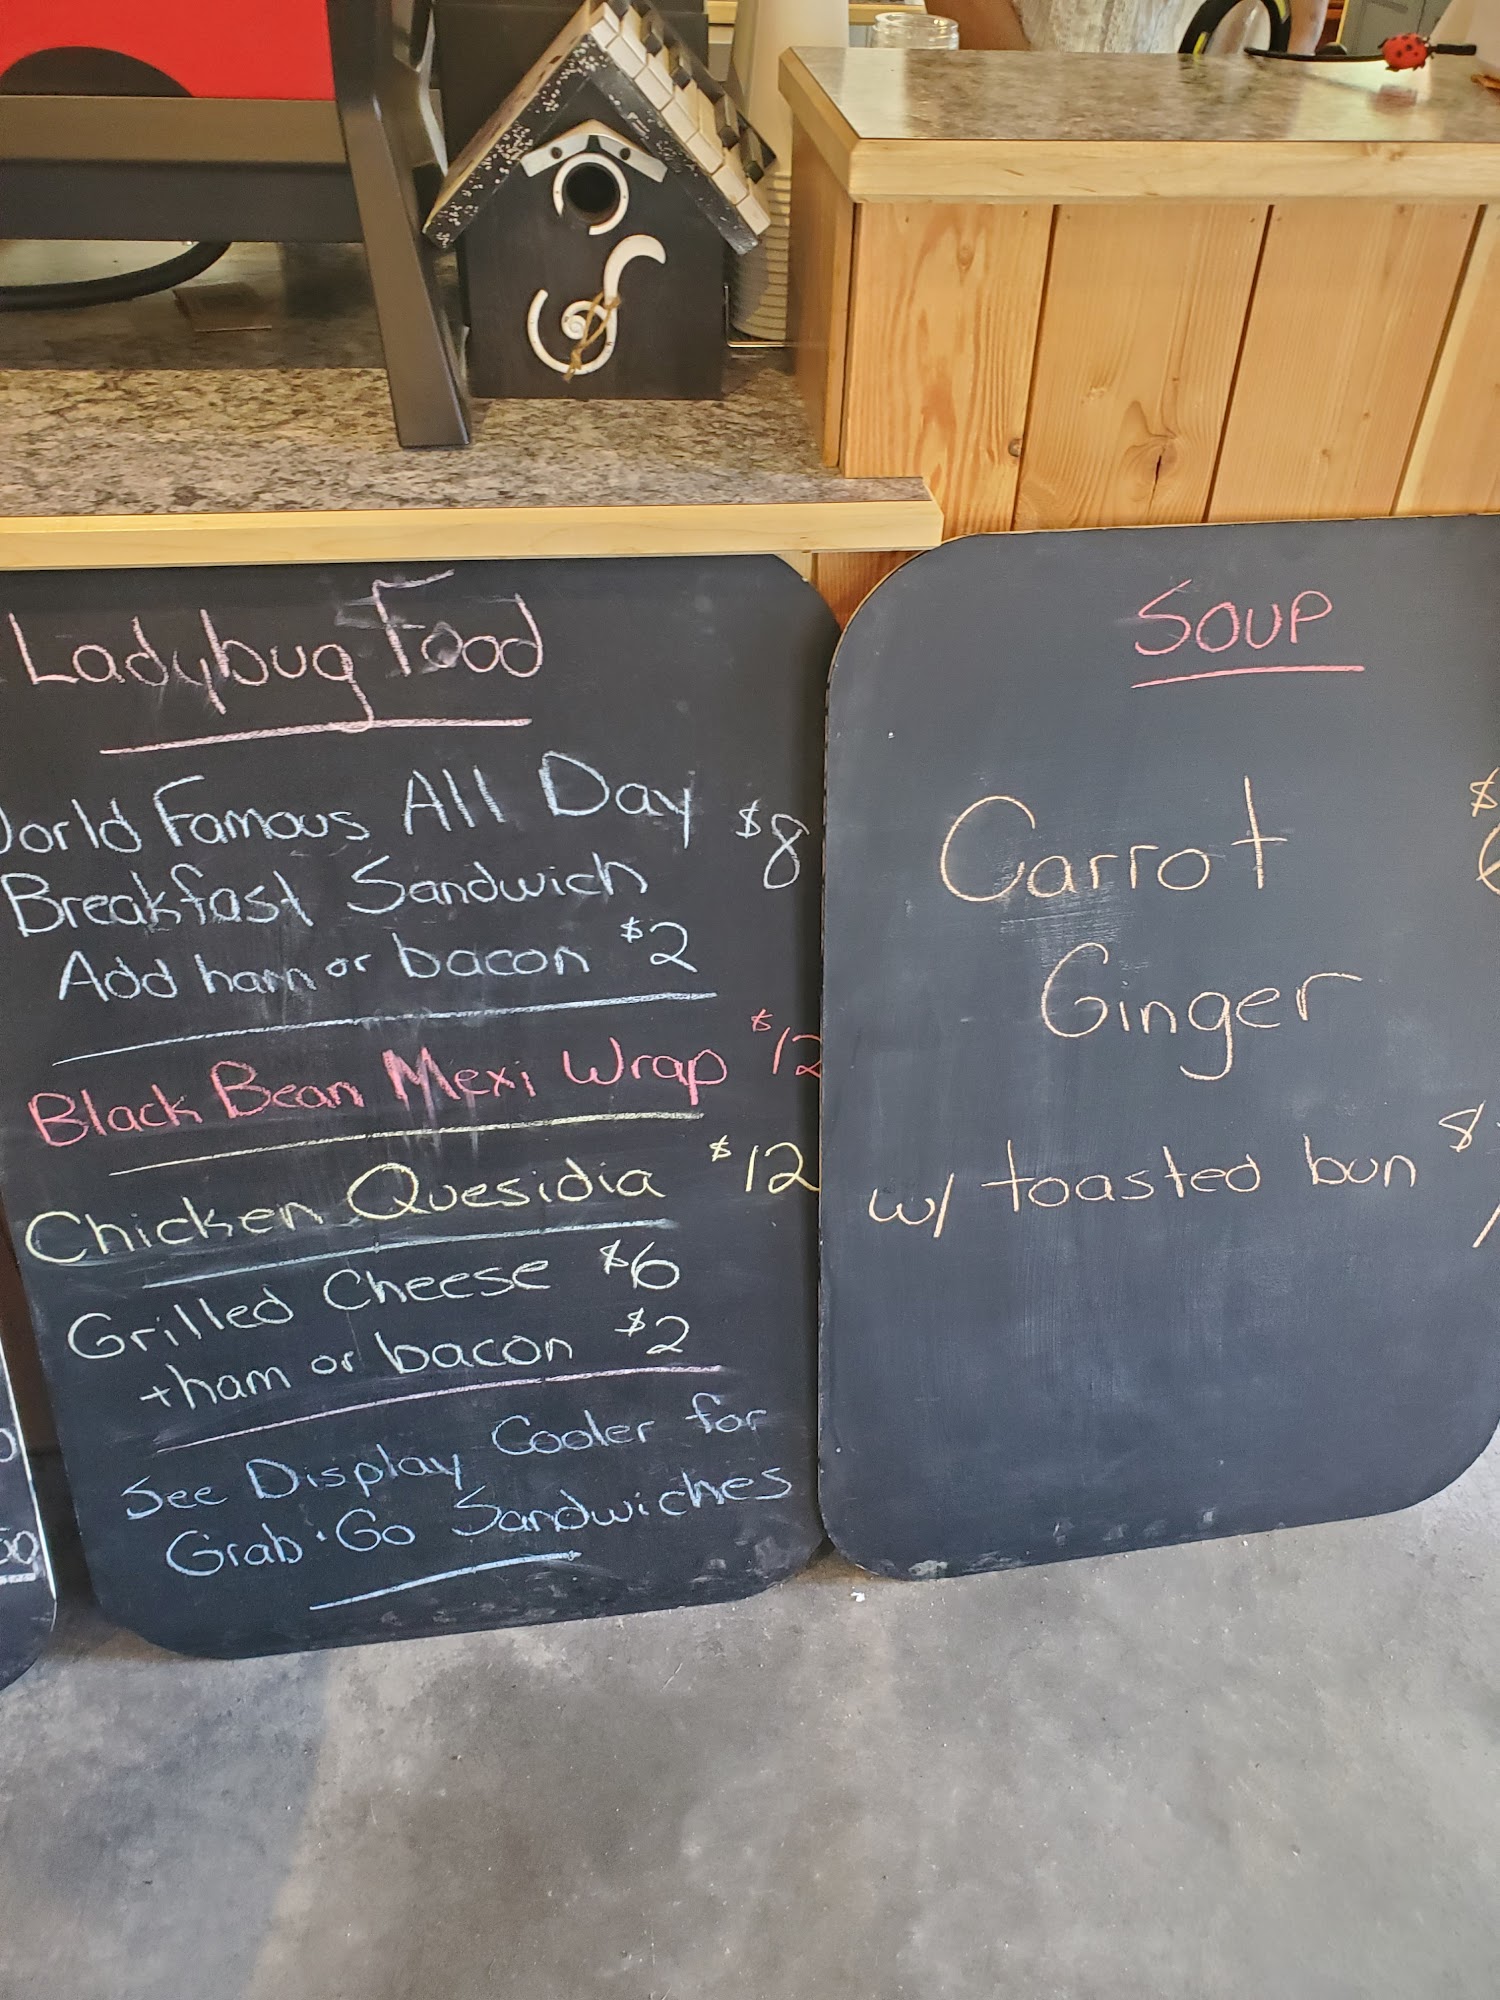 Ladybug Food
World Famous All Day $8
Breakfast Sandwich
Add ham or bacon $2
Black Bean Mexi Wrap $12
Chicken Quesidia $12
Grilled Cheese $6
+ham or bacon $2
See Display Cooler for
Grab·Go Sandwiches
SOUP
Carrot $
Ginger
w/ toasted bun